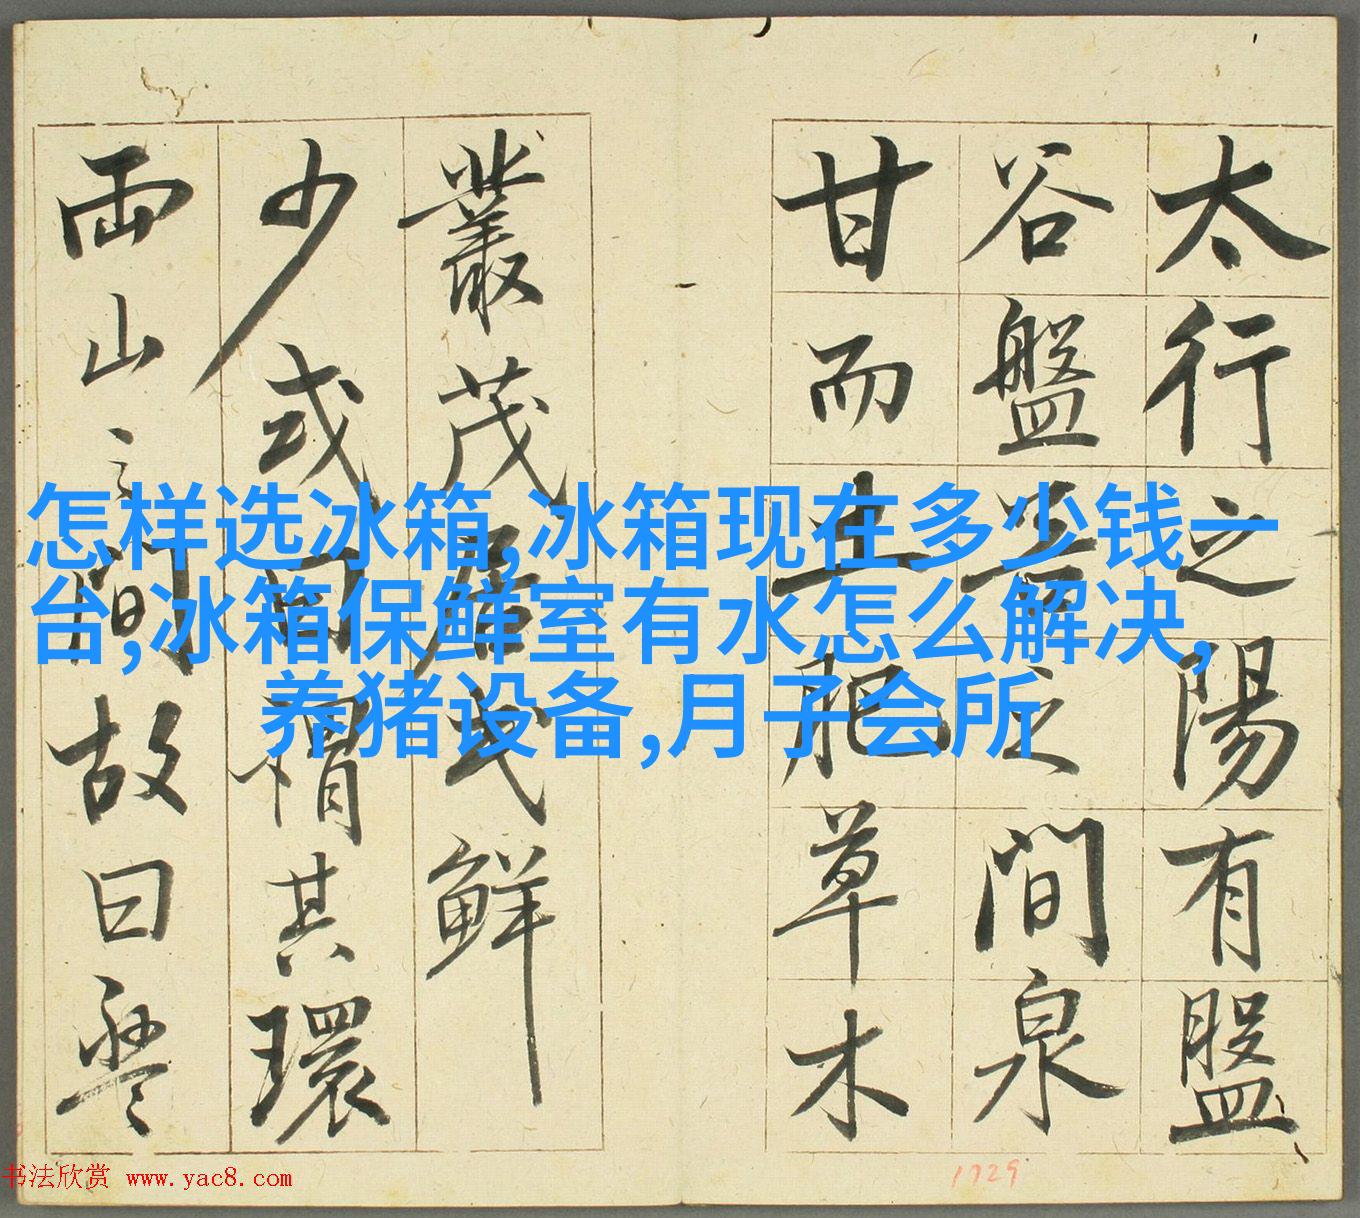 怎样选冰箱,冰箱现在多少钱一
台,冰箱保鲜室有水怎么解决,
养猪设备,月子会所
太行之陽有盤
谷盤谷之間泉
甘而土肥草木
叢茂居民鮮
少或曰謂其環
兩山之間故曰盤
书法欣赏 www.yac8.com
1729